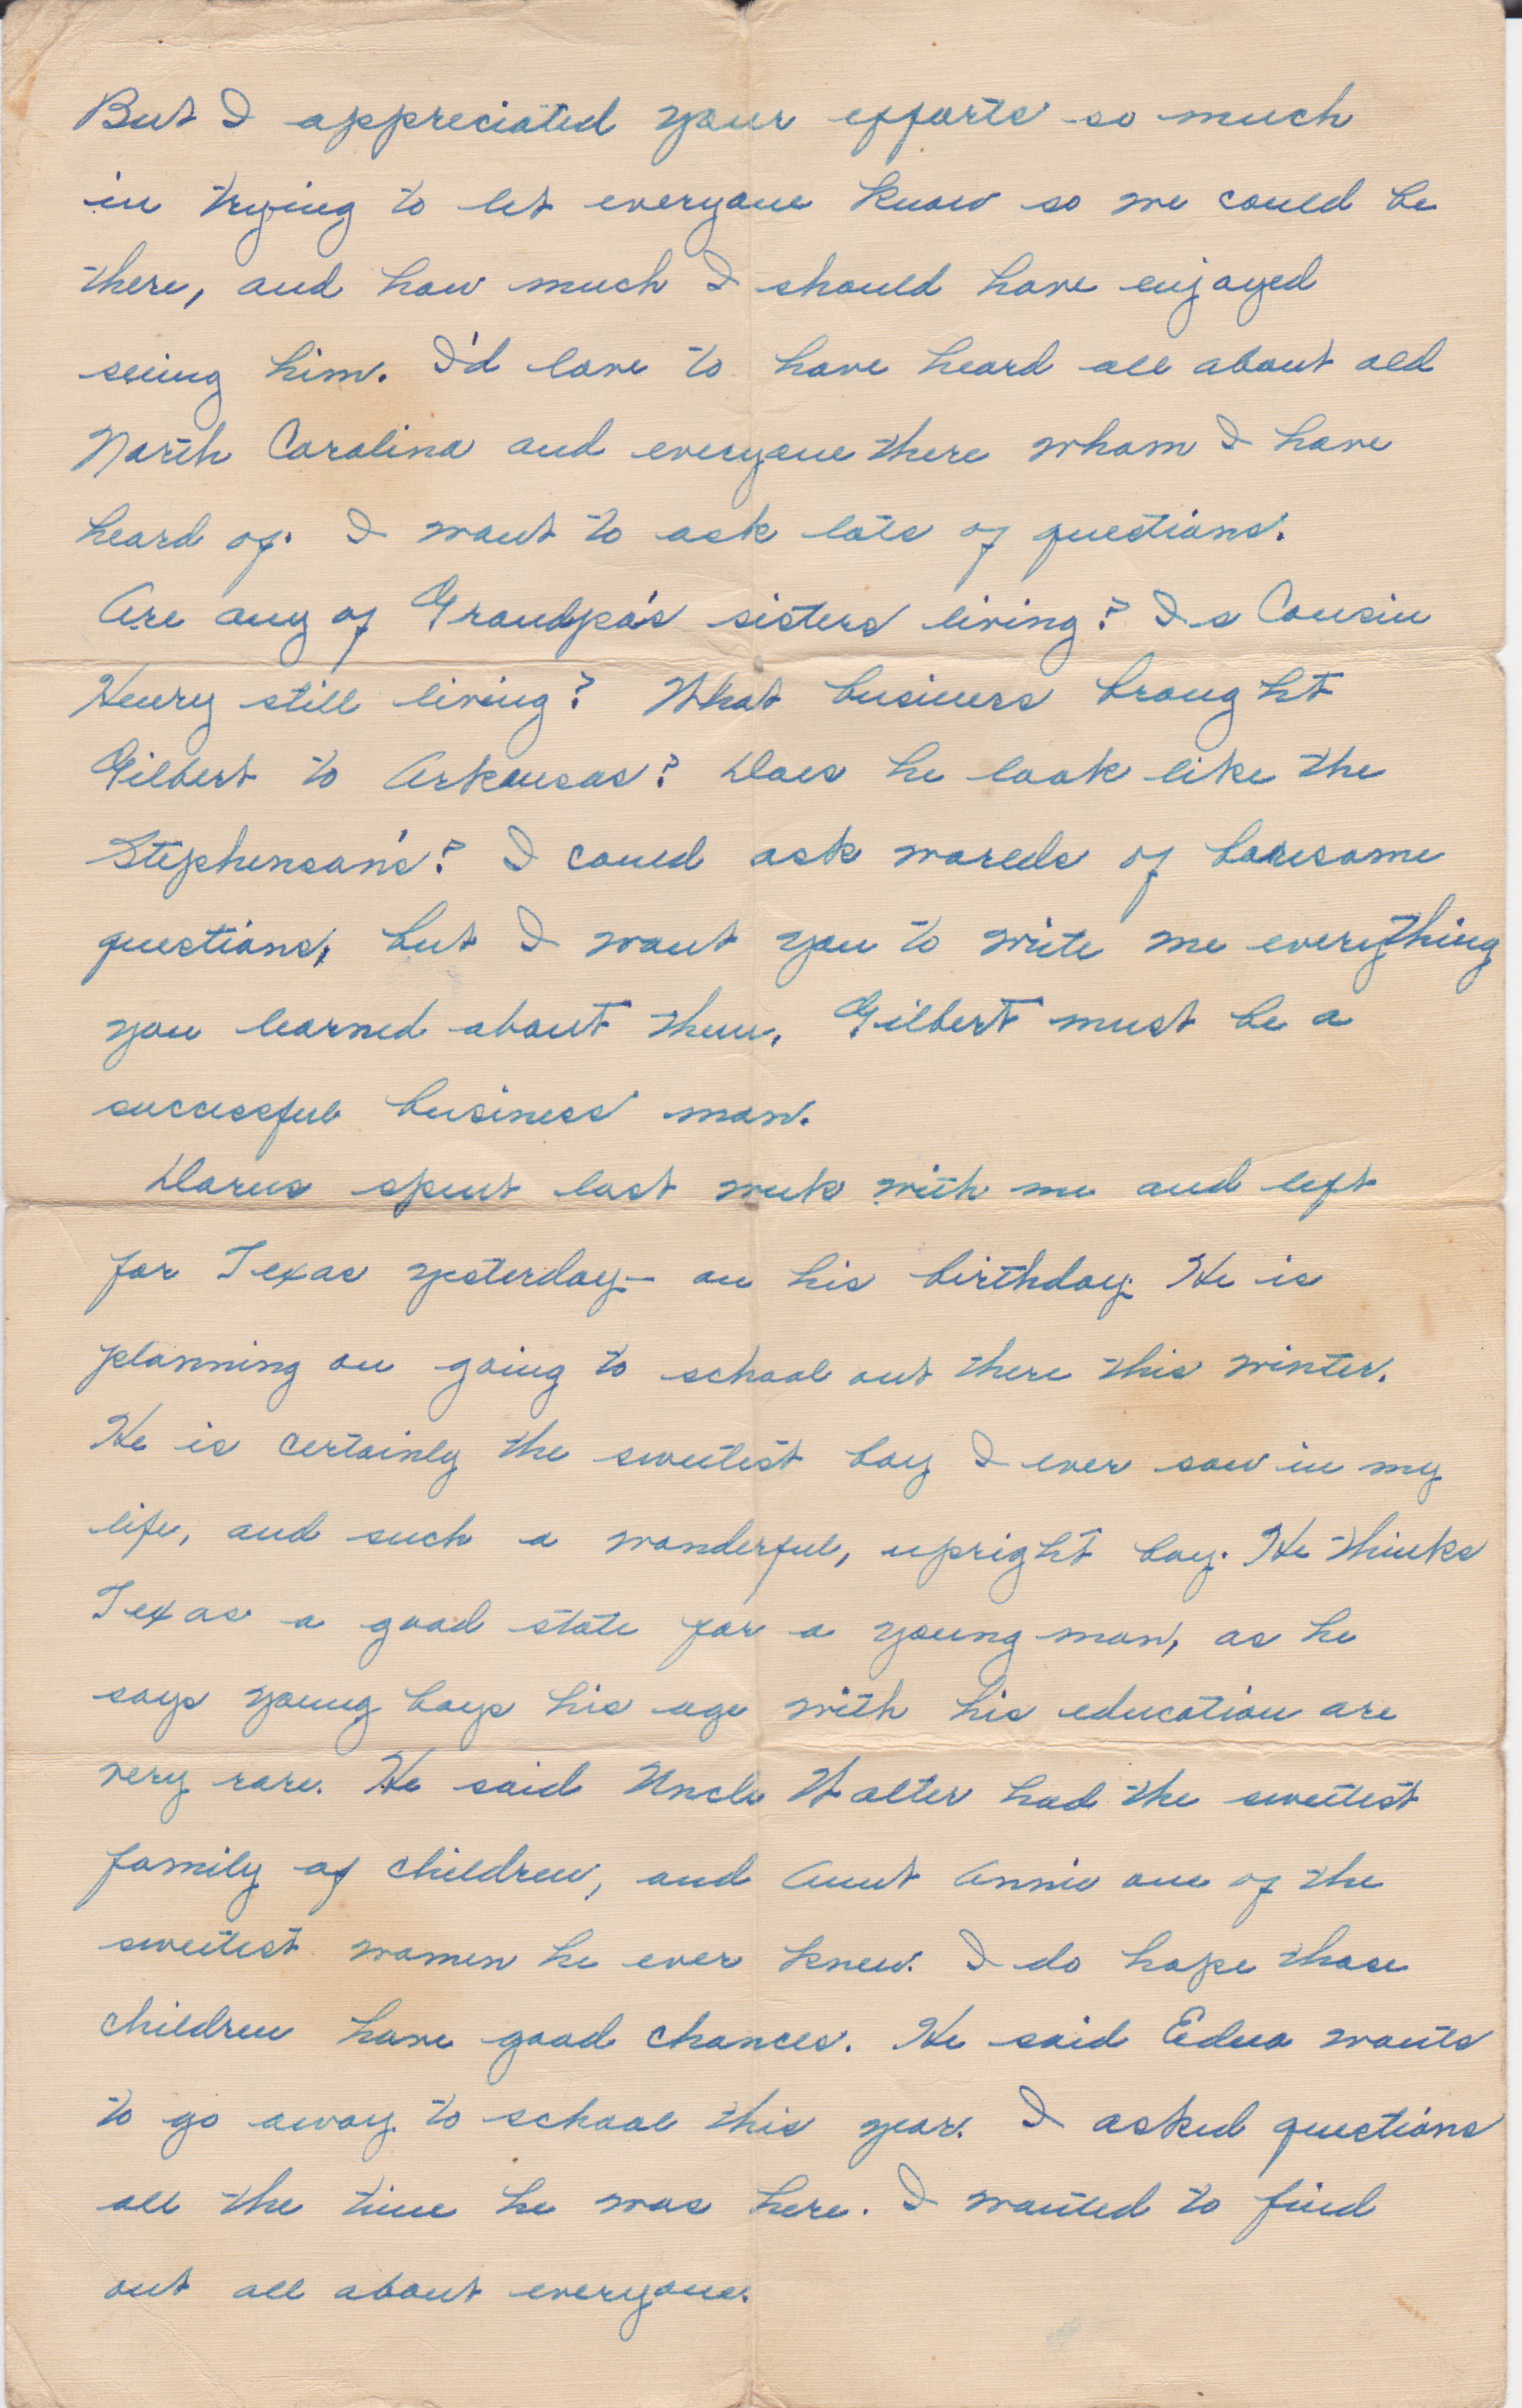 But I appreciated your efforts so much
in trying to let everyone know so we could be
there, and how much I should have enjoyed
seeing him. I'd love to have heard all about old
North Carolina and everyone there whom I have
heard of. I want to ask lots of questions.
Are any of Grandpa's sisters living? Is Cousin
Henry still living? What business brought
Gilbert to Arkansas? Does he look like the
Stephenson's? I could ask worlds of boresome
questions, but I want you to write me everything
you learned about them. Gilbert must be a
successful business man.
spent last week with me and left
for Texas yesterday — on his birthday. He is
planning on going to school out there this winter.
He is certainly the sweetest boy I ever saw in my
life, and such a wonderful, upright boy. He thinks
Texas a good state for a young man, as he
says young boys his age with his education are
very rare. He said Uncle Walter had the sweetest
family of children, and Aunt Annie one of the
sweetest women he ever knew. I do hope those
children have good chances. He said Edna wants
to go away to school this year. I asked questions
all the time he was here. I wanted to find
out all about everyone.